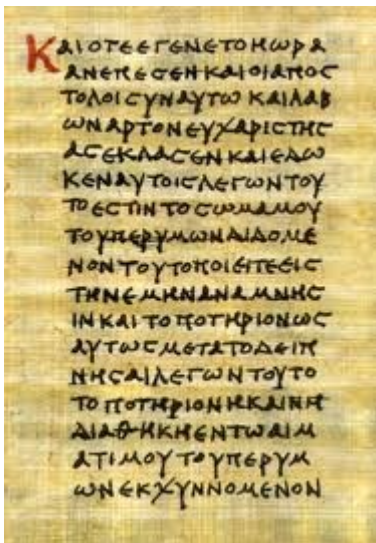 ΚΑΙΟΤΕΕΓΕΝΕΤΟΗΩΡΑ
ΑΝΕΠΕϹΕΝΚΑΙΟΙΑΠΟϹ
ΤΟΛΟΙϹΥΝΑΥΤΩΚΑΙΛΑΒ
ΩΝΑΡΤΟΝΕΥΧΑΡΙϹΤΗϹ
ΑϹΕΚΛΑϹΕΝΚΑΙΕΔΩ
ΚΕΝΑΥΤΟΙϹΛΕΓΩΝΤΟΥ
ΤΟΕϹΤΙΝΤΟϹΩΜΑΜΟΥ
ΤΟΥΠΕΡΥΜΩΝΔΙΔΟΜΕ
ΝΟΝΤΟΥΤΟΠΟΙΕΙΤΕΕΙϹ
ΤΗΝΕΜΗΝΑΝΑΜΝΗϹ
ΙΝΚΑΙΤΟΠΟΤΗΡΙΟΝΩϹ
ΑΥΤΩϹΜΕΤΑΤΟΔΕΙΠ
ΝΗϹΑΙΛΕΓΩΝΤΟΥΤΟ
ΤΟΠΟΤΗΡΙΟΝΗΚΑΙΝΗ
ΔΙΑΘΗΚΗΕΝΤΩΑΙΜ
ΑΤΙΜΟΥΤΟΥΠΕΡΥΜ
ΩΝΕΚΧΥΝΝΟΜΕΝΟΝ